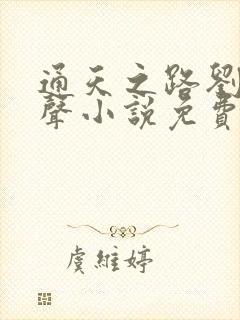 通天之路劉
聲小說免費
虞維婷